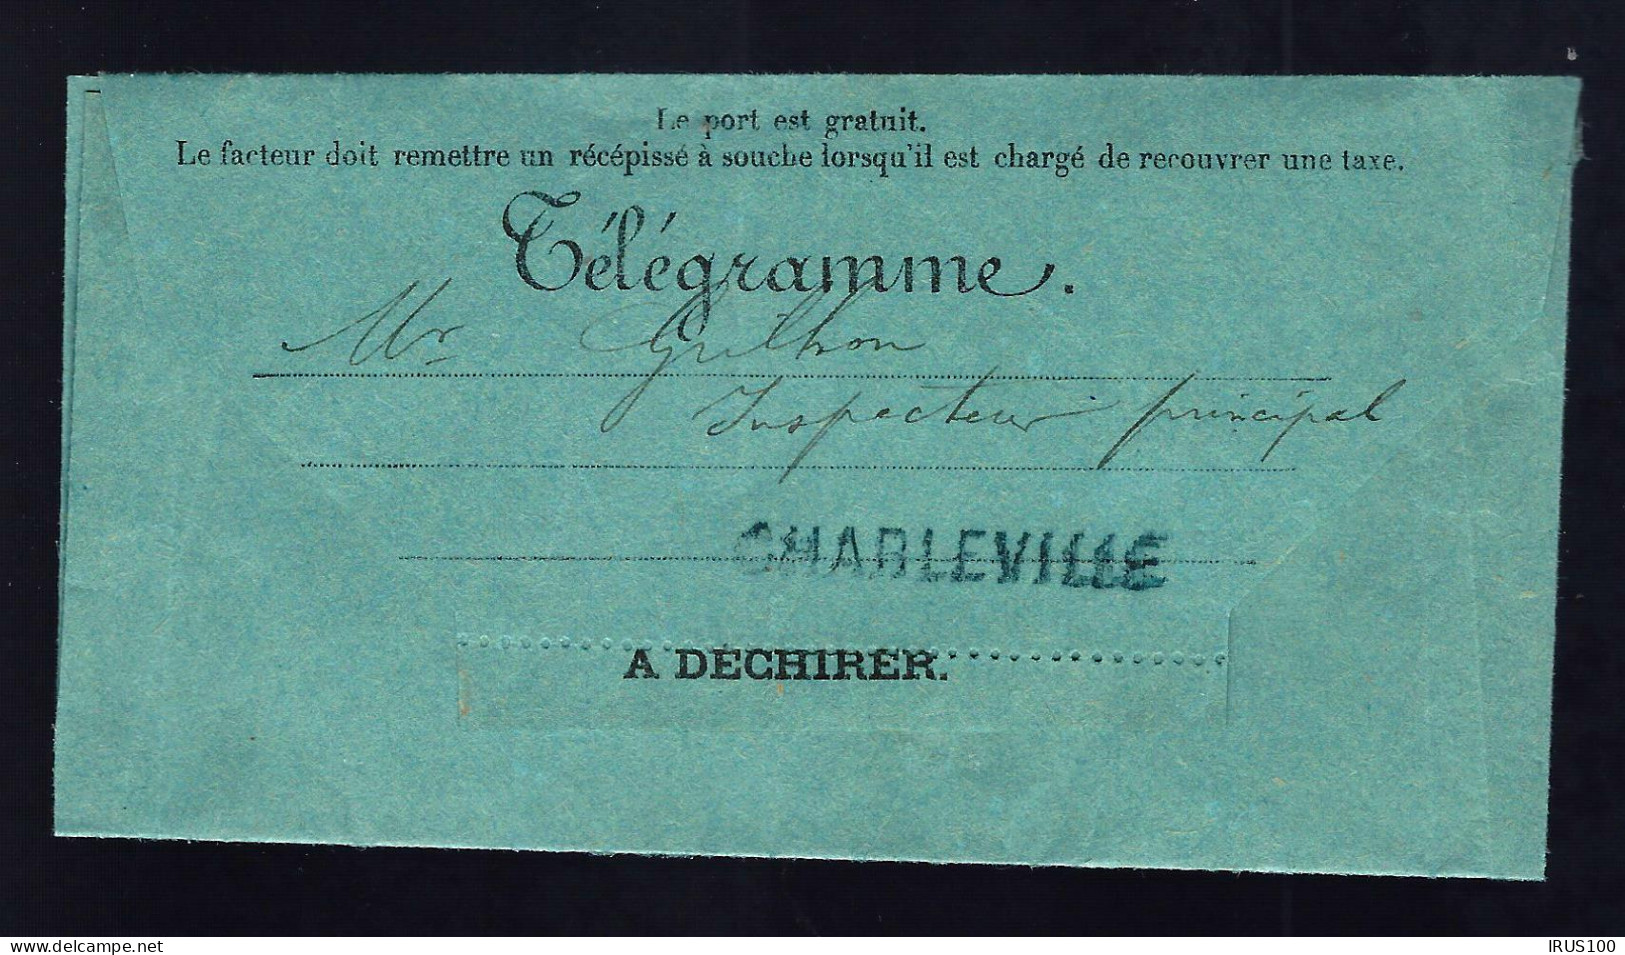 Le port est gratuit.
Le facteur doit remettre un récépissé à souche lorsqu'il est chargé de recouvrer une taxe.
Télégramme.
Mr Guilhon
Inspecteur principal
CHARLEVILLE
A DÉCHIRER.
www.delcampe.net
IRUS100